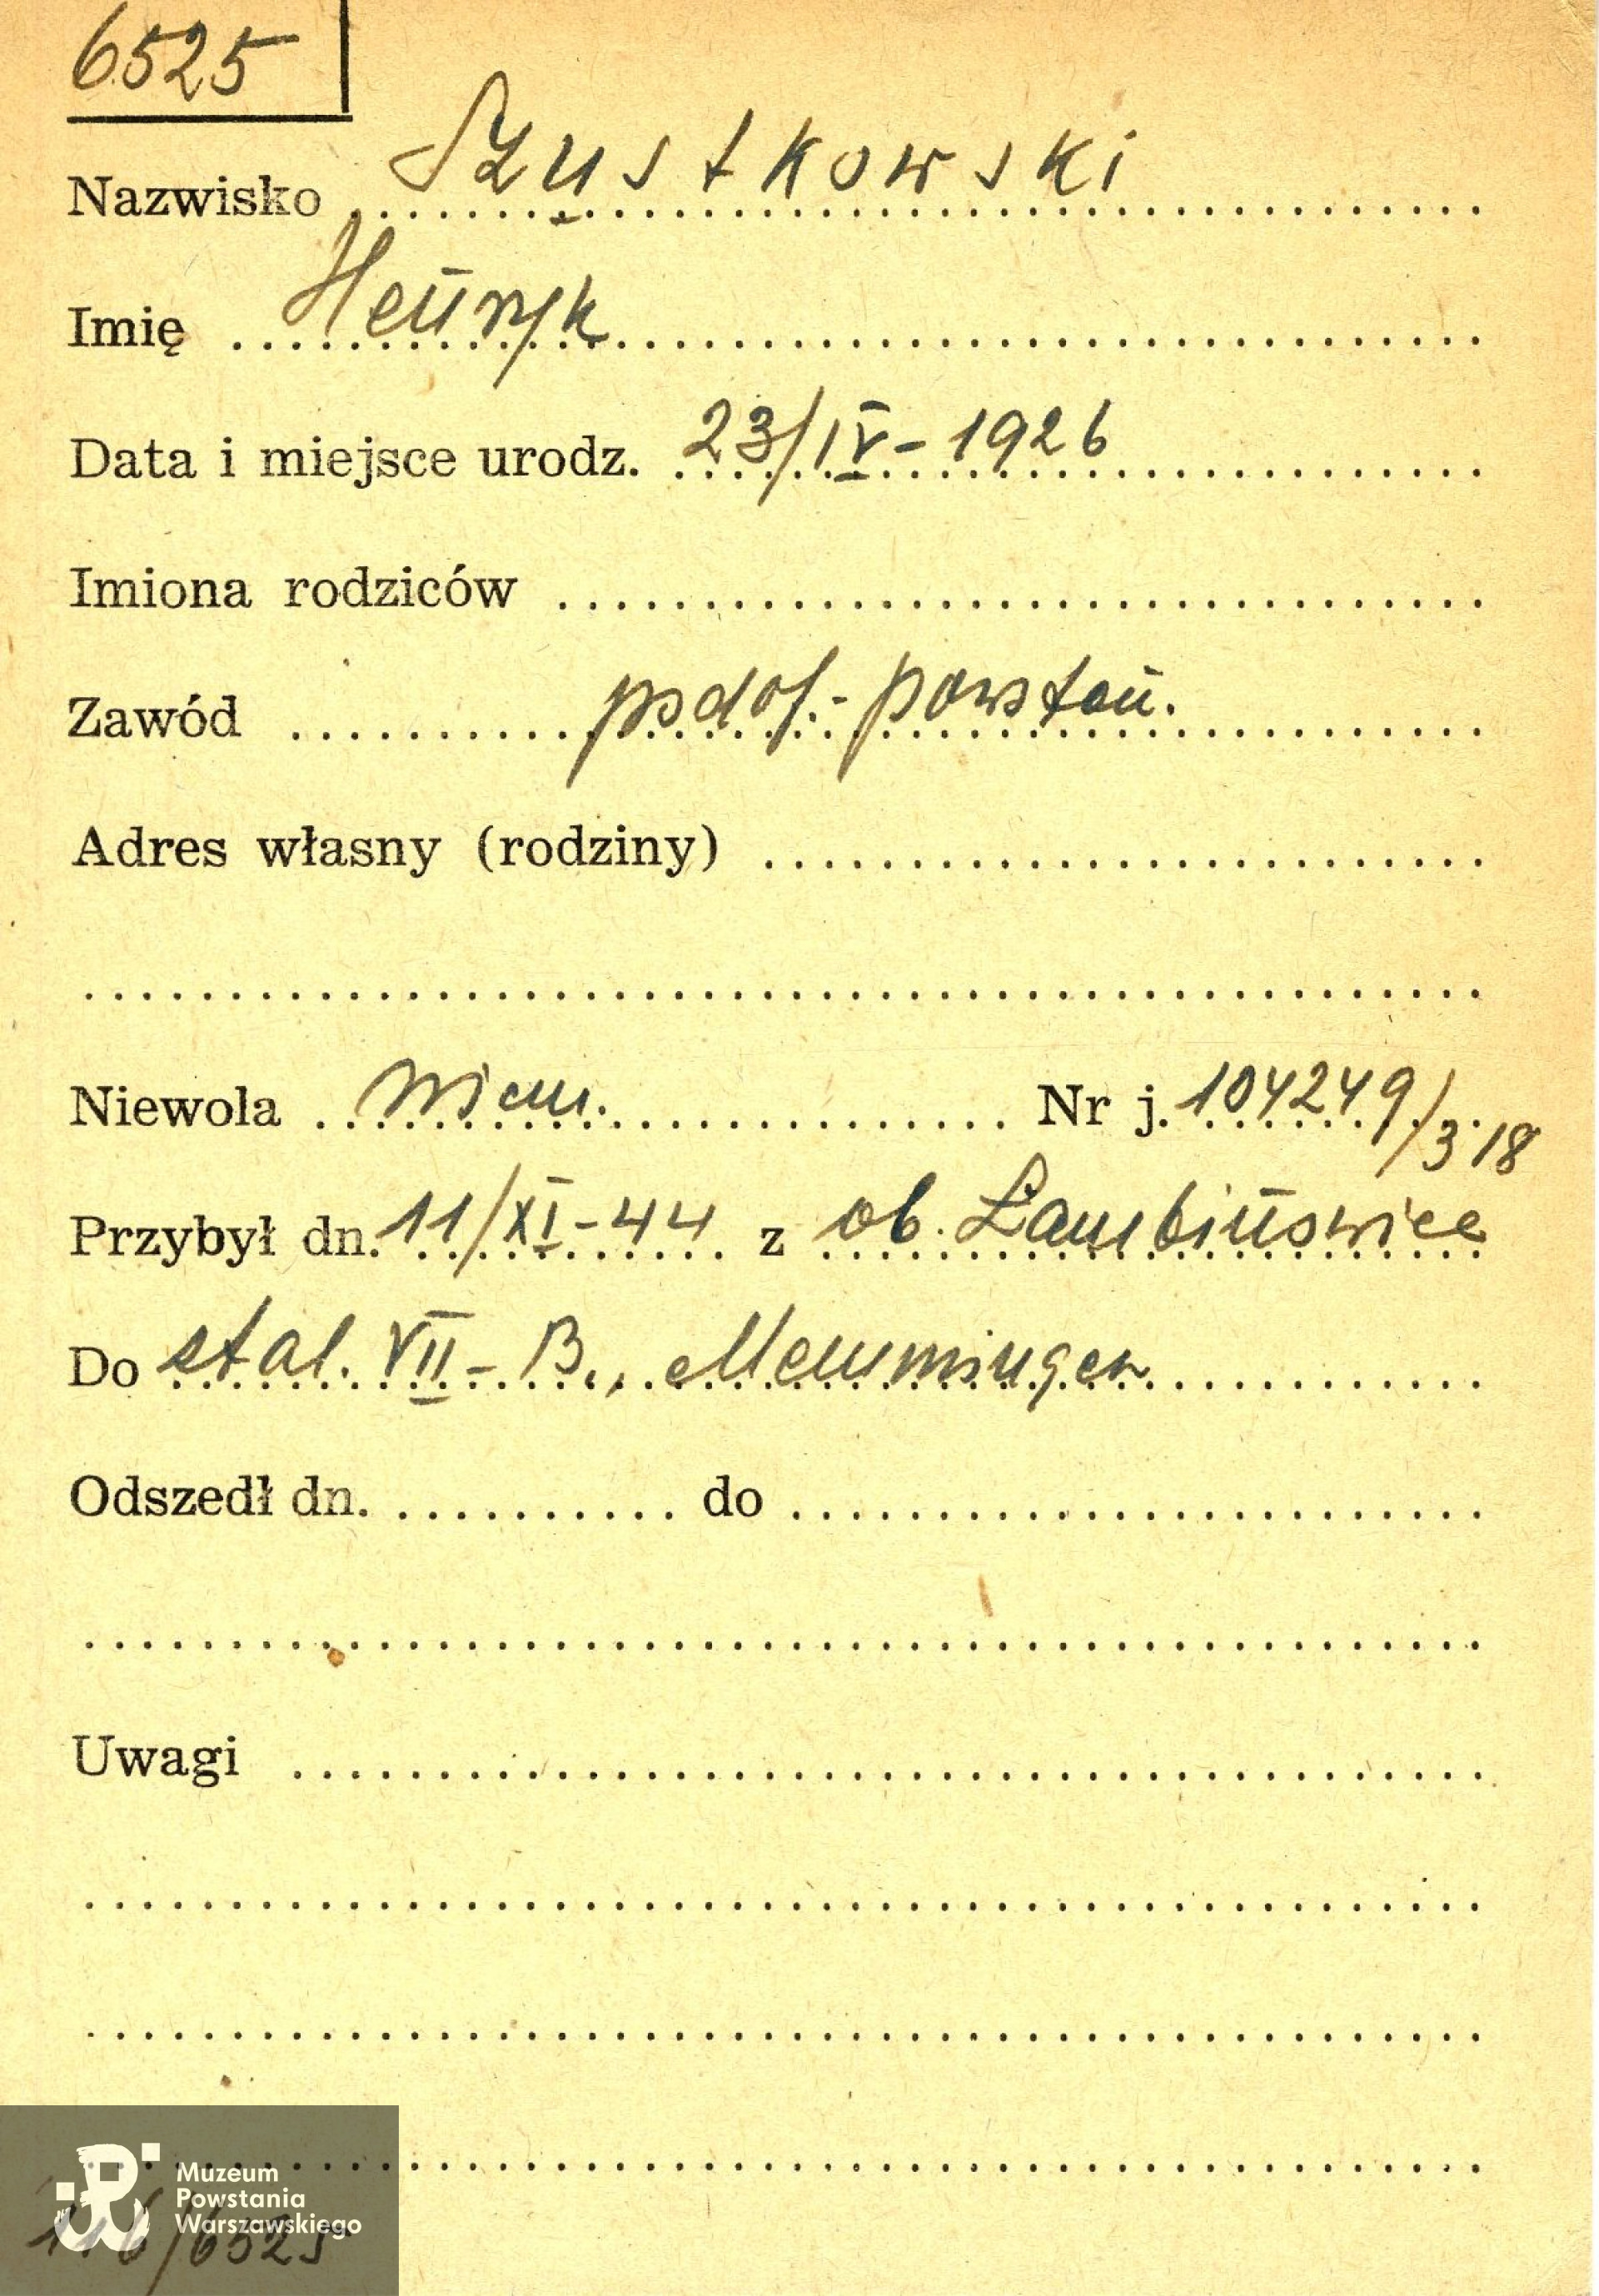 6525
Nazwisko Szustkowski
Imię Henryk
Data i miejsce urodz. 23/IV - 1926
Imiona rodziców
Zawód pdof. - powstań.
Adres własny (rodziny)
Niewola niem. Nr j. 104249/318
Przybył dn. 11/XI - 44 z ob. Łambinowice
Do stal. VII - B., Memmingen
Odszedł dn. do
Uwagi
Muzeum
Powstania
Warszawskiego
116/6525